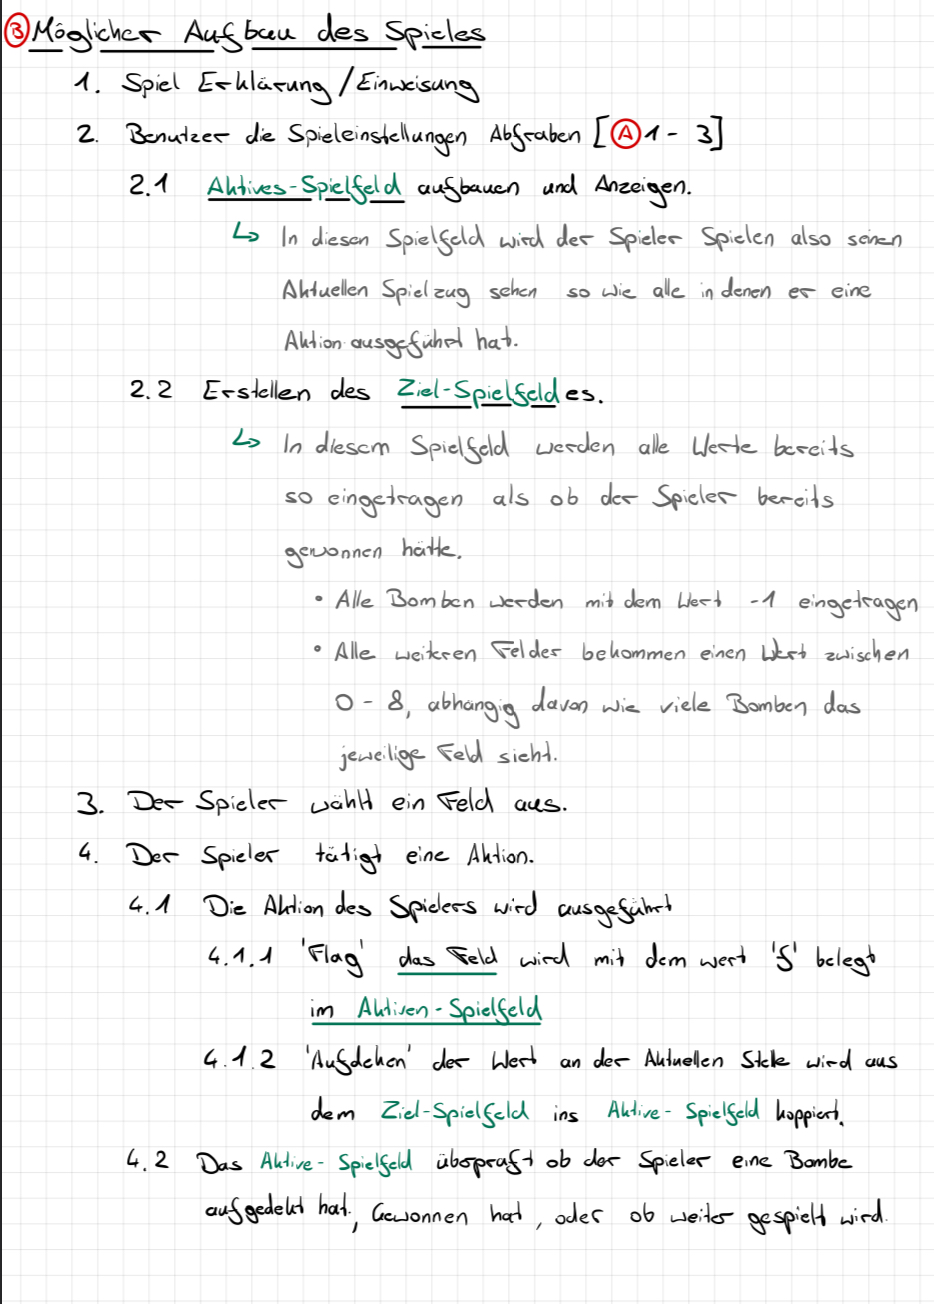 B Möglicher Aufbau des Spieles
1. Spiel Erklärung / Einweisung
2. Benutzer die Spieleinstellungen Abfraben [A 1 - 3]
2.1 Aktives-Spielfeld aufbauen und Anzeigen.
↳ In diesen Spielfeld wird der Spieler Spielen also seinen
Aktuellen Spielzug sehen so wie alle in denen er eine
Aktion ausgeführt hat.
2.2 Erstellen des Ziel-Spielfeldes.
↳ In diesem Spielfeld werden alle Werte bereits
so eingetragen als ob der Spieler bereits
gewonnen hätte.
• Alle Bomben werden mit dem Wert -1 eingetragen
• Alle weiteren Felder bekommen einen Wert zwischen
0 - 8, abhängig davon wie viele Bomben das
jeweilige Feld sieht.
3. Der Spieler wählt ein Feld aus.
4. Der Spieler tätigt eine Aktion.
4.1 Die Aktion des Spielers wird ausgeführt
4.1.1 'Flag' das Feld wird mit dem wert 'f' belegt
im Aktiven-Spielfeld
4.1.2 'Aufdeken' der Wert an der Aktuellen Stelle wird aus
dem Ziel-Spielfeld ins Aktive-Spielfeld koppiert.
4.2 Das Aktive-Spielfeld überpraft ob der Spieler eine Bombe
aufgedekt hat, Gewonnen hat, oder ob weiter gespielt wird.